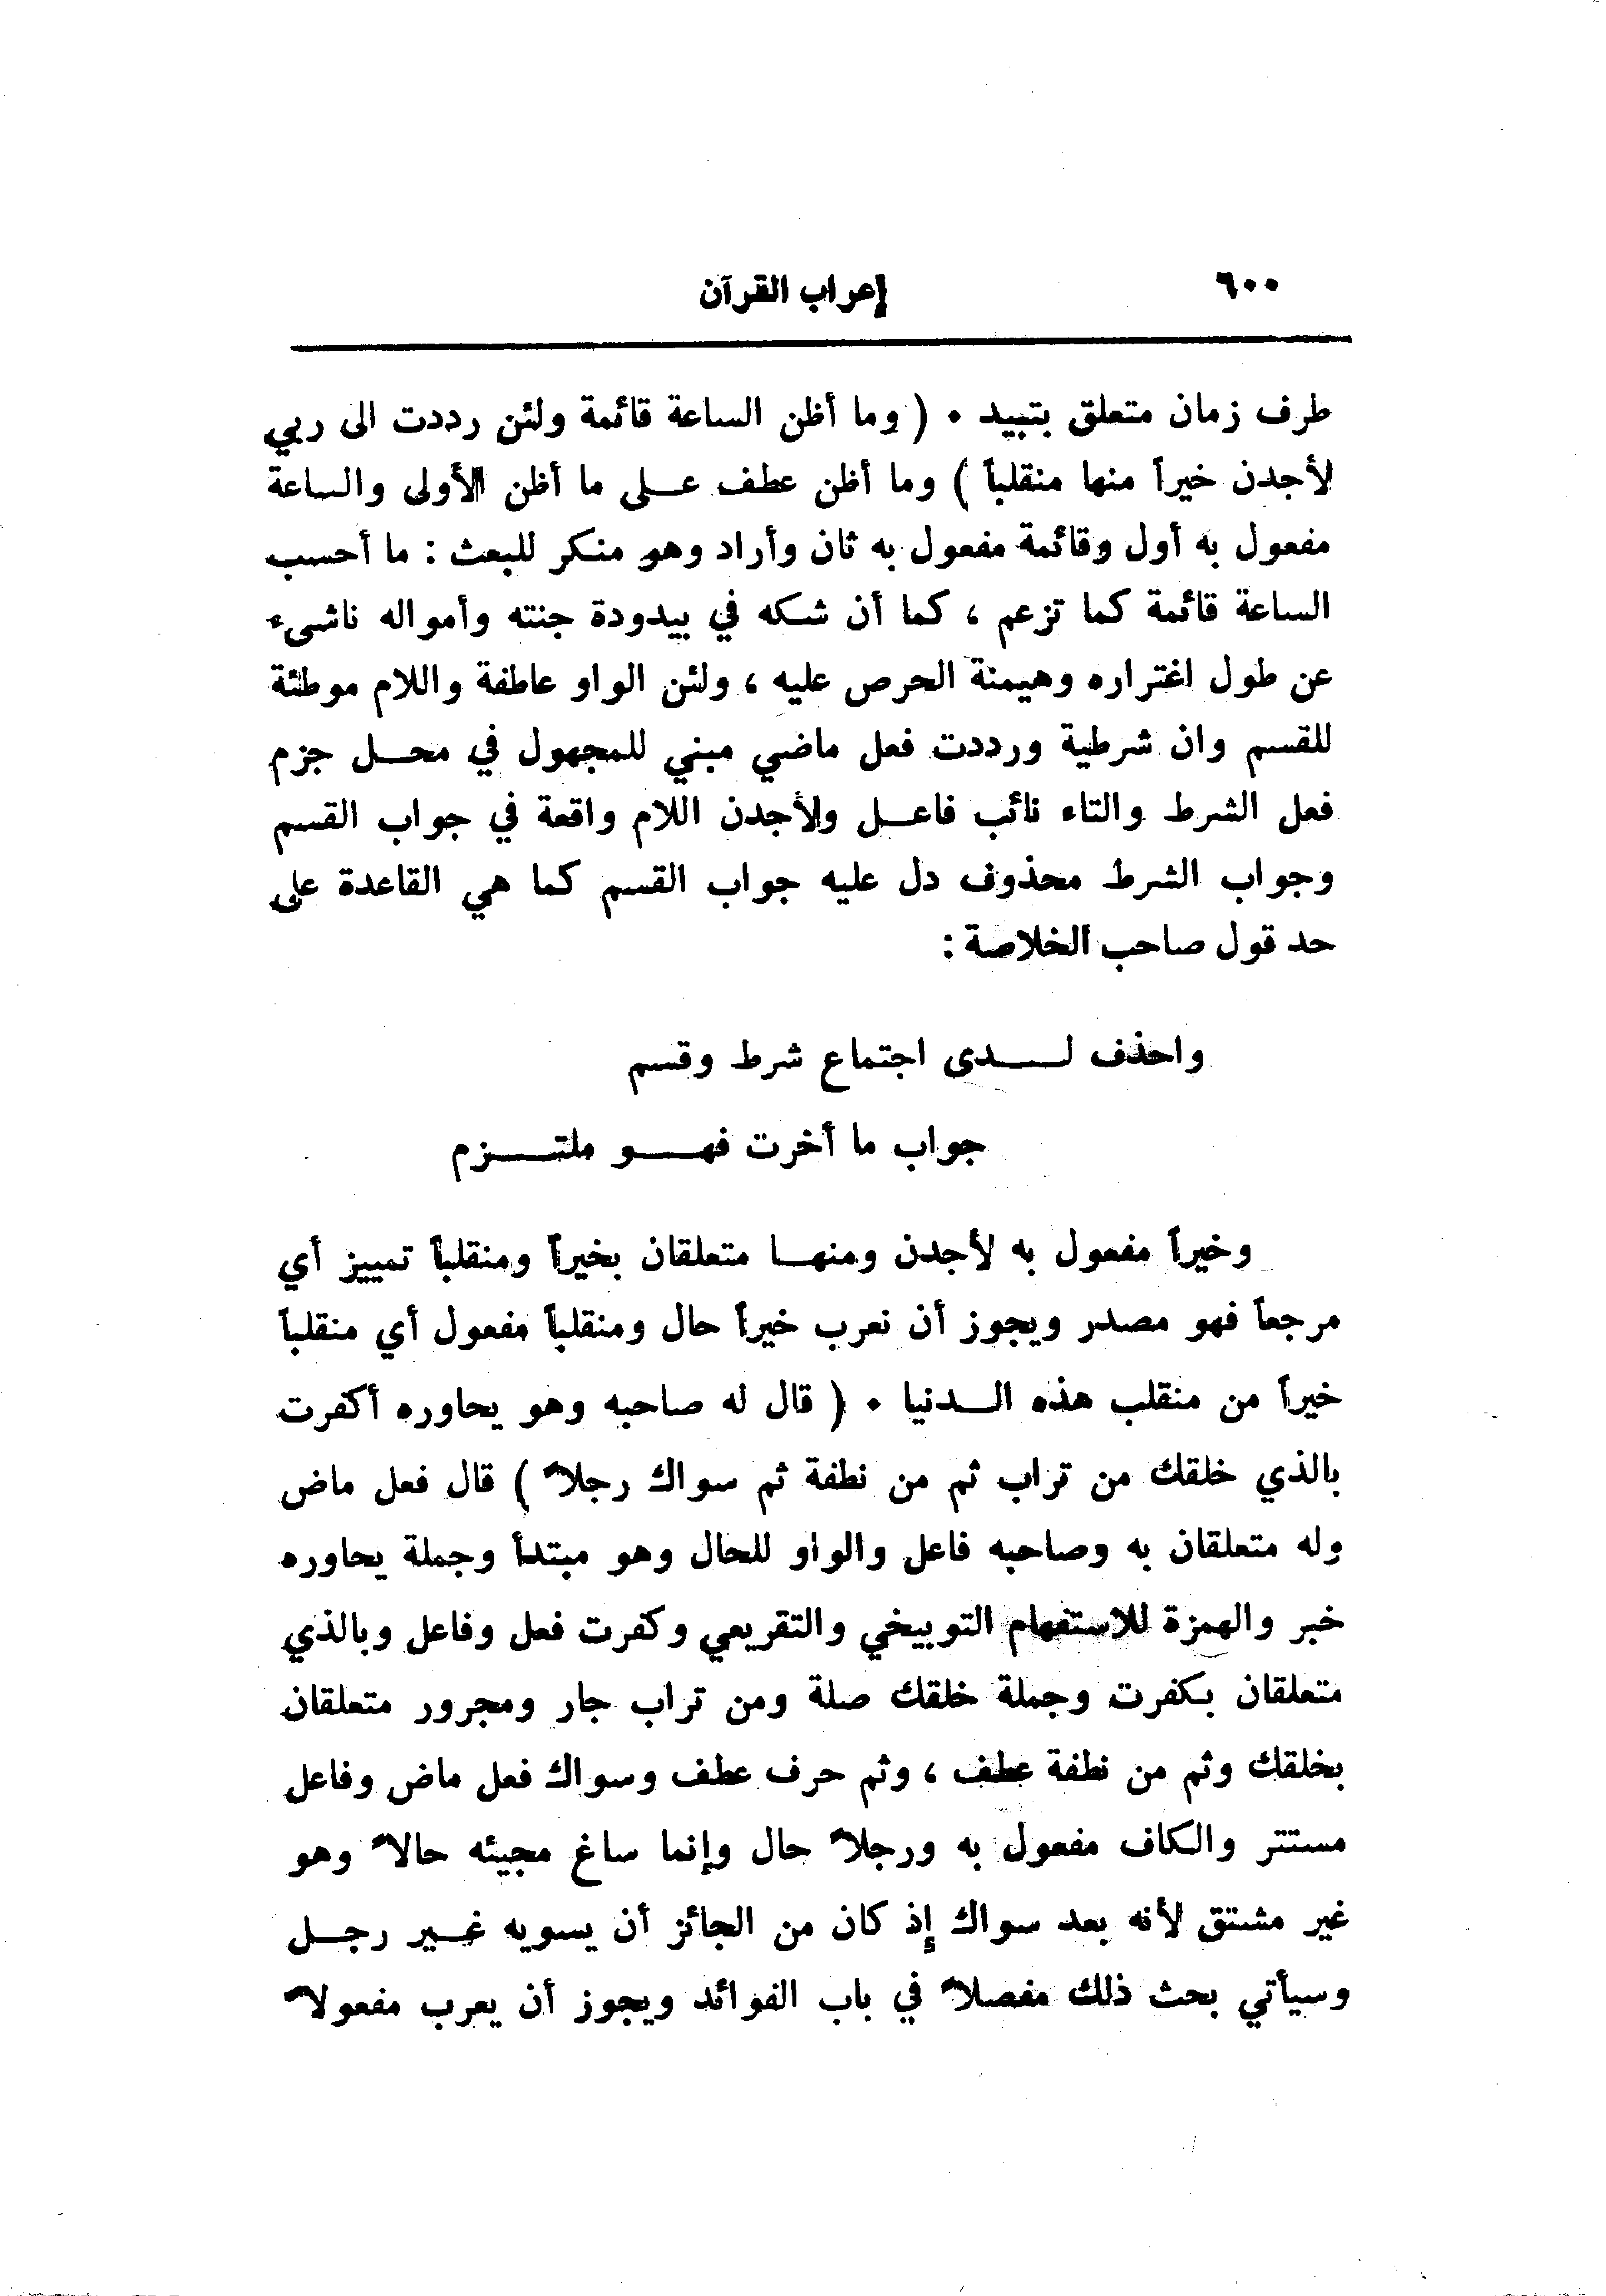 ٦٠٠
إعراب القرآن
ظرف زمان متعلق بتبيد ٠ ( وما أظن الساعة قائمة ولئن رددت الى ربي
لأجدن خيراً منها منقلباً ) وما أظن عطف عـلى ما أظن الأولى والساعة
مفعول به أول وقائمة مفعول به ثان وأراد وهو منكر للبعث : ما أحسب
الساعة قائمة كما تزعم ، كما أن شكه في بيدودة جنته وأمواله ناشىء
عن طول اغتراره وهيمنة الحرص عليه ، ولئن الواو عاطفة واللام موطئة
للقسم وان شرطية ورددت فعل ماضي مبني للمجهول في محـل جزم
فعل الشرط والتاء نائب فاعـل ولأجدن اللام واقعة في جواب القسم
وجواب الشرط محذوف دل عليه جواب القسم كما هي القاعدة على
حد قول صاحب الخلاصة :
واحذف لـدى اجتماع شرط وقسم
جواب ما أخرت فهـو ملتـزم
وخيراً مفعول به لأجدن ومنهـا متعلقان بخيراً ومنقلباً تمييز أي
مرجعاً فهو مصدر ويجوز أن نعرب خيراً حال ومنقلباً مفعول أي منقلباً
خيراً من منقلب هذه الـدنيا ٠ ( قال له صاحبه وهو يحاوره أكفرت
بالذي خلقك من تراب ثم من نطفة ثم سواك رجلاً ) قال فعل ماض
وله متعلقان به وصاحبه فاعل والواو للحال وهو مبتدأ وجملة يحاوره
خبر والهمزة للاستفهام التوبيخي والتقريعي وكفرت فعل وفاعل وبالذي
متعلقان بكفرت وجملة خلقك صلة ومن تراب جار ومجرور متعلقان
بخلقك وثم من نطفة عطف ، وثم حرف عطف وسواك فعل ماض وفاعل
مستتر والكاف مفعول به ورجلاً حال وإنما ساغ مجيئه حالاً وهو
غير مشتق لأنه بعد سواك إذ كان من الجائز أن يسويه غـير رجـل
وسيأتي بحث ذلك مفصلاً في باب الفوائد ويجوز أن يعرب مفعولاً